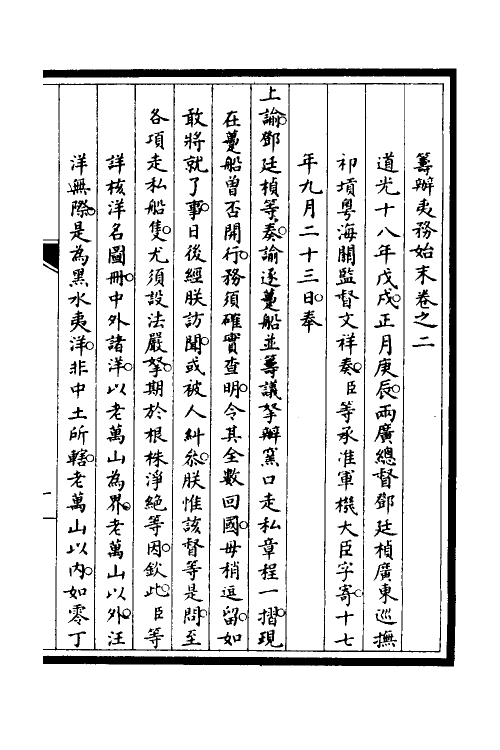 籌辦夷務始末卷之二
道光十八年戊戌。正月庚辰。兩廣總督鄧廷楨廣東巡撫
祁𡎴粵海關監督文祥奏。臣等承准軍機大臣字寄。十七
年九月二十三日。奉
上諭。鄧廷楨等奏。諭逐躉船並籌議拏辦窯口走私章程一摺。現
在躉船曾否開行。務須確實查明。令其全數回國。毋稍逗留。如
敢將就了事。日後經朕訪聞。或被人糾叅。朕惟該督等是問。至
各項走私船隻。尤須設法嚴拏。期於根株淨絕等因。欽此。臣等
詳核洋名圖冊。中外諸洋。以老萬山為界。老萬山以外。汪
洋無際。是為黑水夷洋。非中土所轄。老萬山以內。如零丁
一